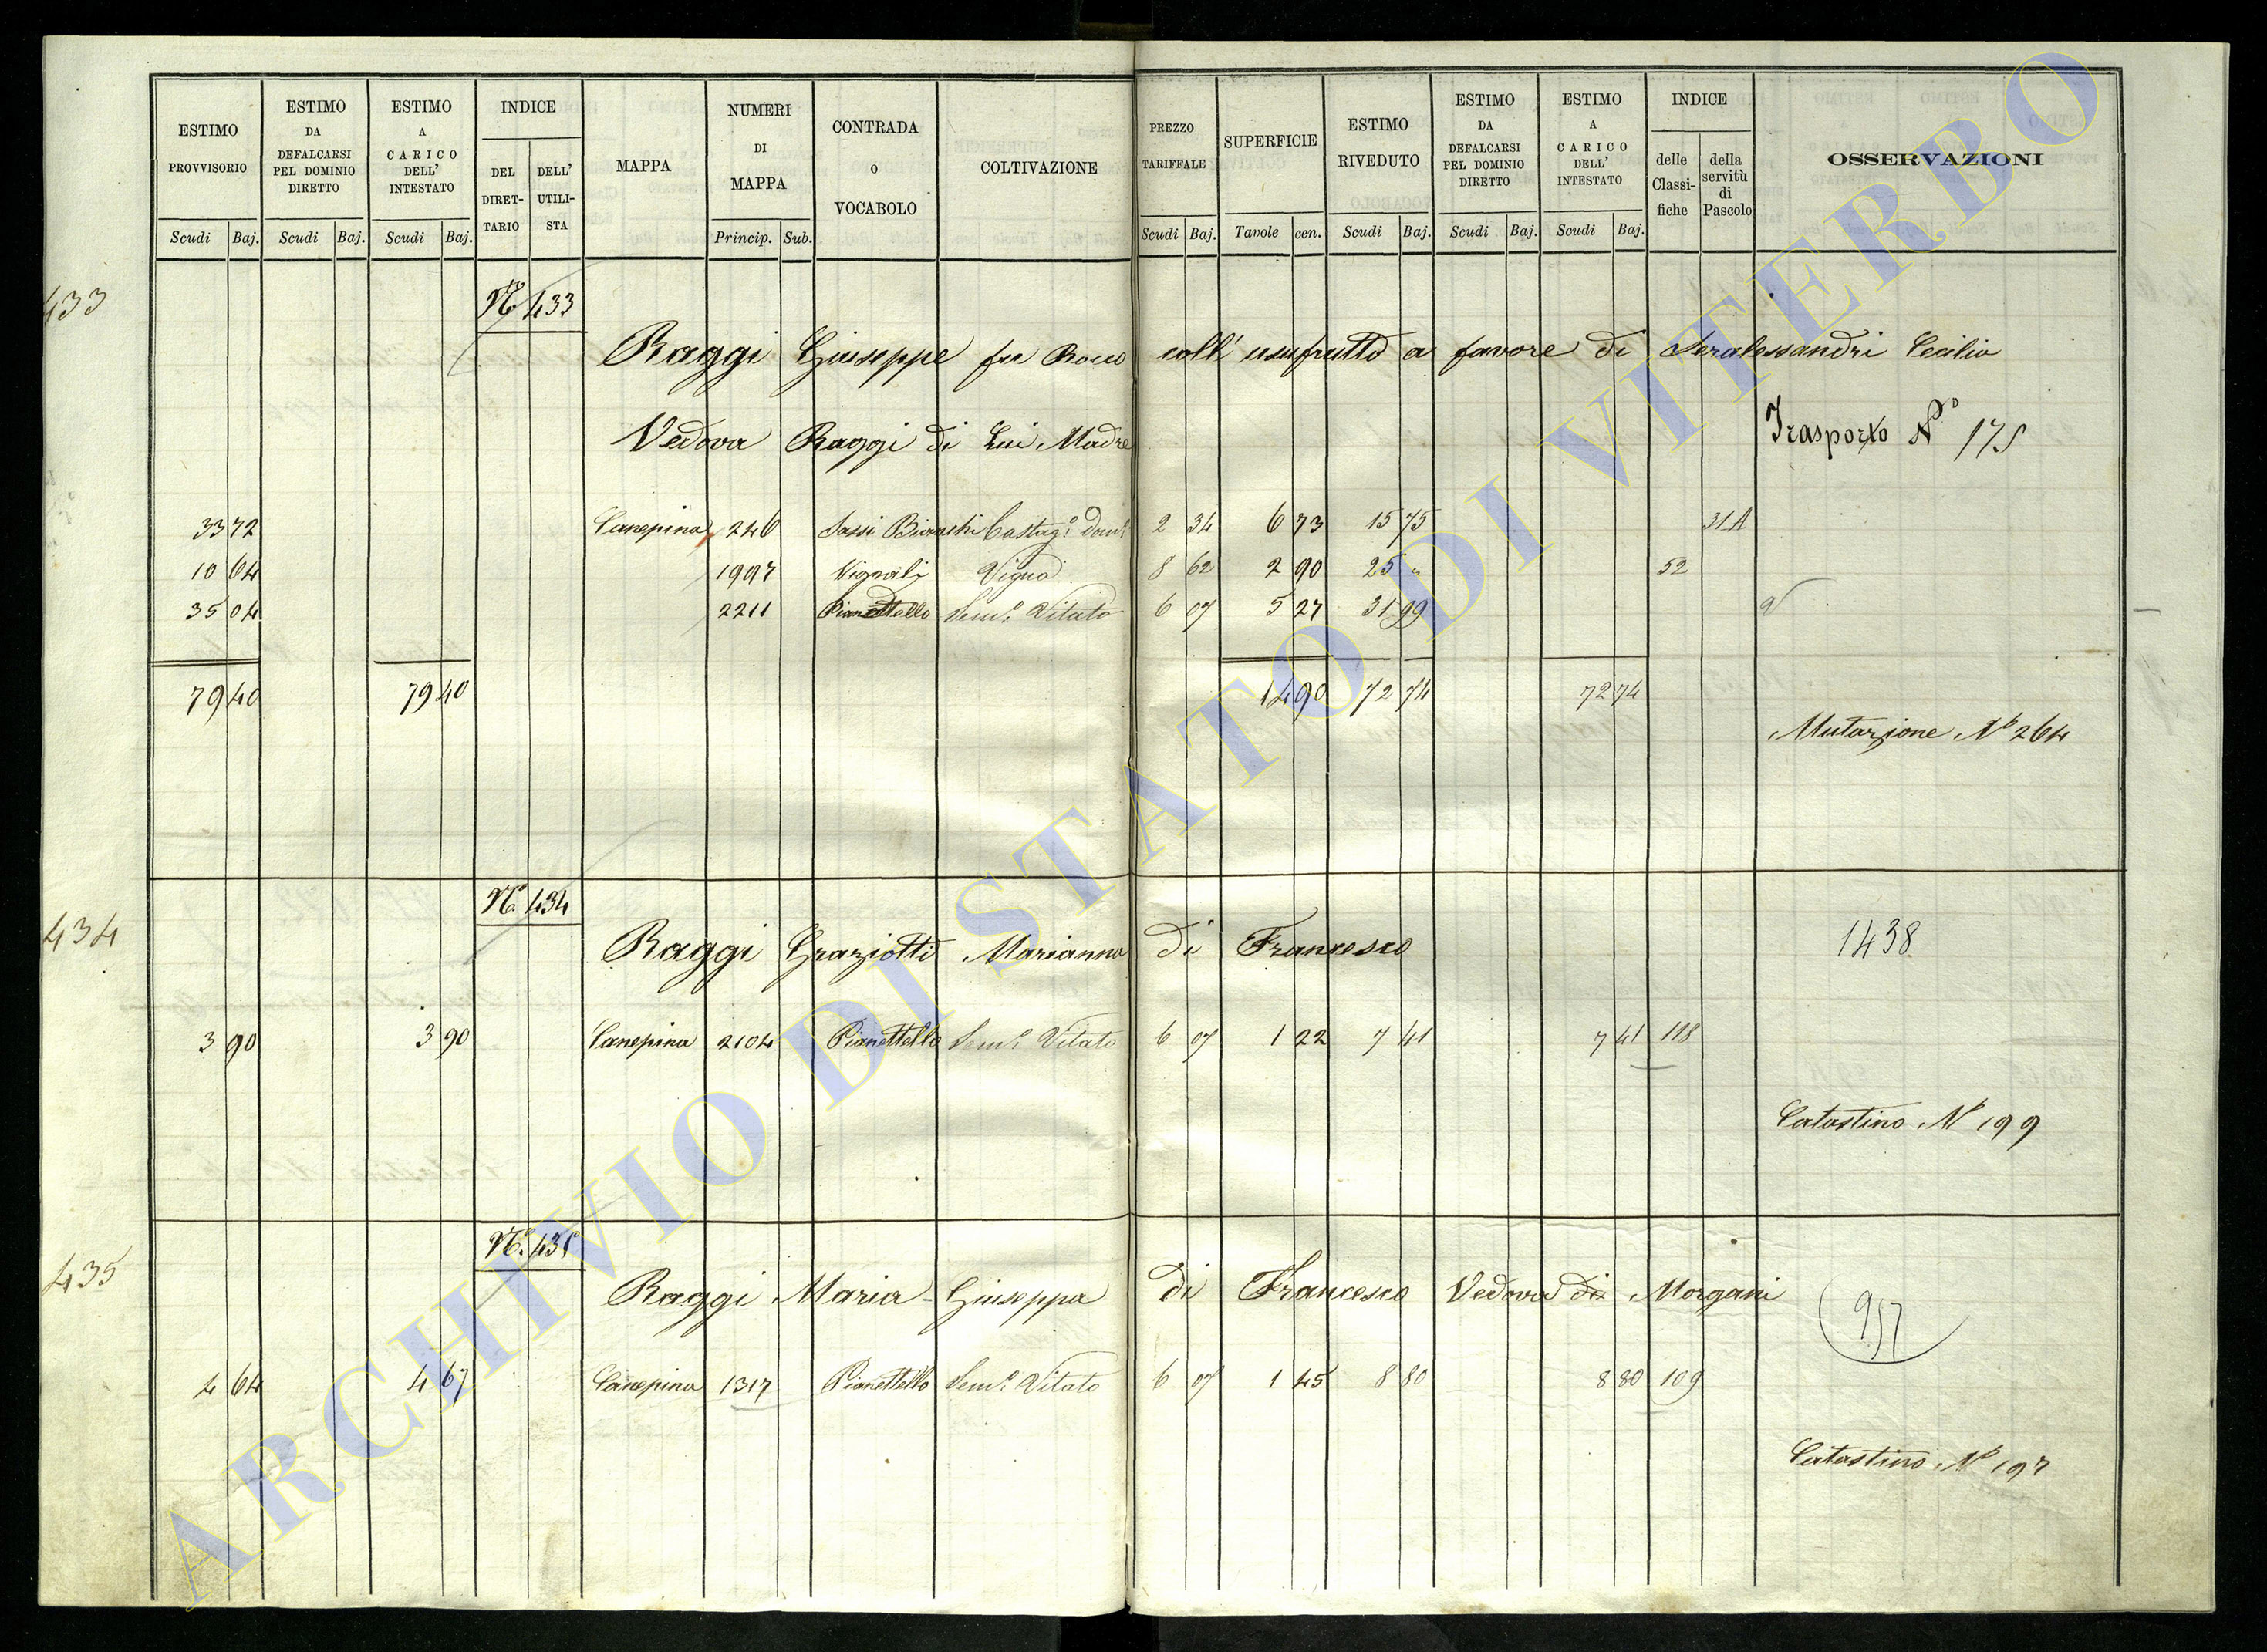 ESTIMO PROVVISORIO | ESTIMO DA DEFALCARSI PEL DOMINIO DIRETTO | ESTIMO A CARICO DELL' INTESTATO | INDICE DEL DIRETTARIO | DELL' UTILISTA | MAPPA | NUMERI DI MAPPA | CONTRADA O VOCABOLO | COLTIVAZIONE | PREZZO TARIFFALE | SUPERFICIE | ESTIMO RIVEDUTO | ESTIMO DA DEFALCARSI PEL DOMINIO DIRETTO | ESTIMO A CARICO DELL' INTESTATO | INDICE delle Classifiche | della servitù di Pascolo | OSSERVAZIONI
Scudi Baj. Scudi Baj. Scudi Baj. Princip. Sub. Scudi Baj. Tavole cen. Scudi Baj. Scudi Baj. Scudi Baj.
433 Nº 433
Raggi Giuseppe fu Rocco coll' usufrutto a favore di Seralessandri Cecilia
Vedova Raggi di Lui Madre
Trasporto Nº 175
33 72 Canepina 246 Sassi Bianchi Castagº domº 2 34 6 73 15 75 31A
10 64 1997 Vignali Vigna 8 62 2 90 25 "
52
35 04 2211 Pianettello Semº Vitato 6 07 5 27 31 99
79 40 79 40 14 90 72 74 72 74
Mutazione Nº 264
434 Nº 434
Raggi Graziotti Marianna di Francesco 1438
3 90 3 90 Canepina 2104 Pianettello Semº Vitato 6 07 1 22 7 41 7 41 118
Catastino Nº 199
435 Nº 435
Raggi Maria - Giuseppa di Francesco Vedova di Morgani
957
4 64 4 67 Canepina 1317 Pianettello Semº Vitato 6 07 1 45 8 80 8 80 109
Catastino Nº 197
ARCHIVIO DI STATO DI VITERBO